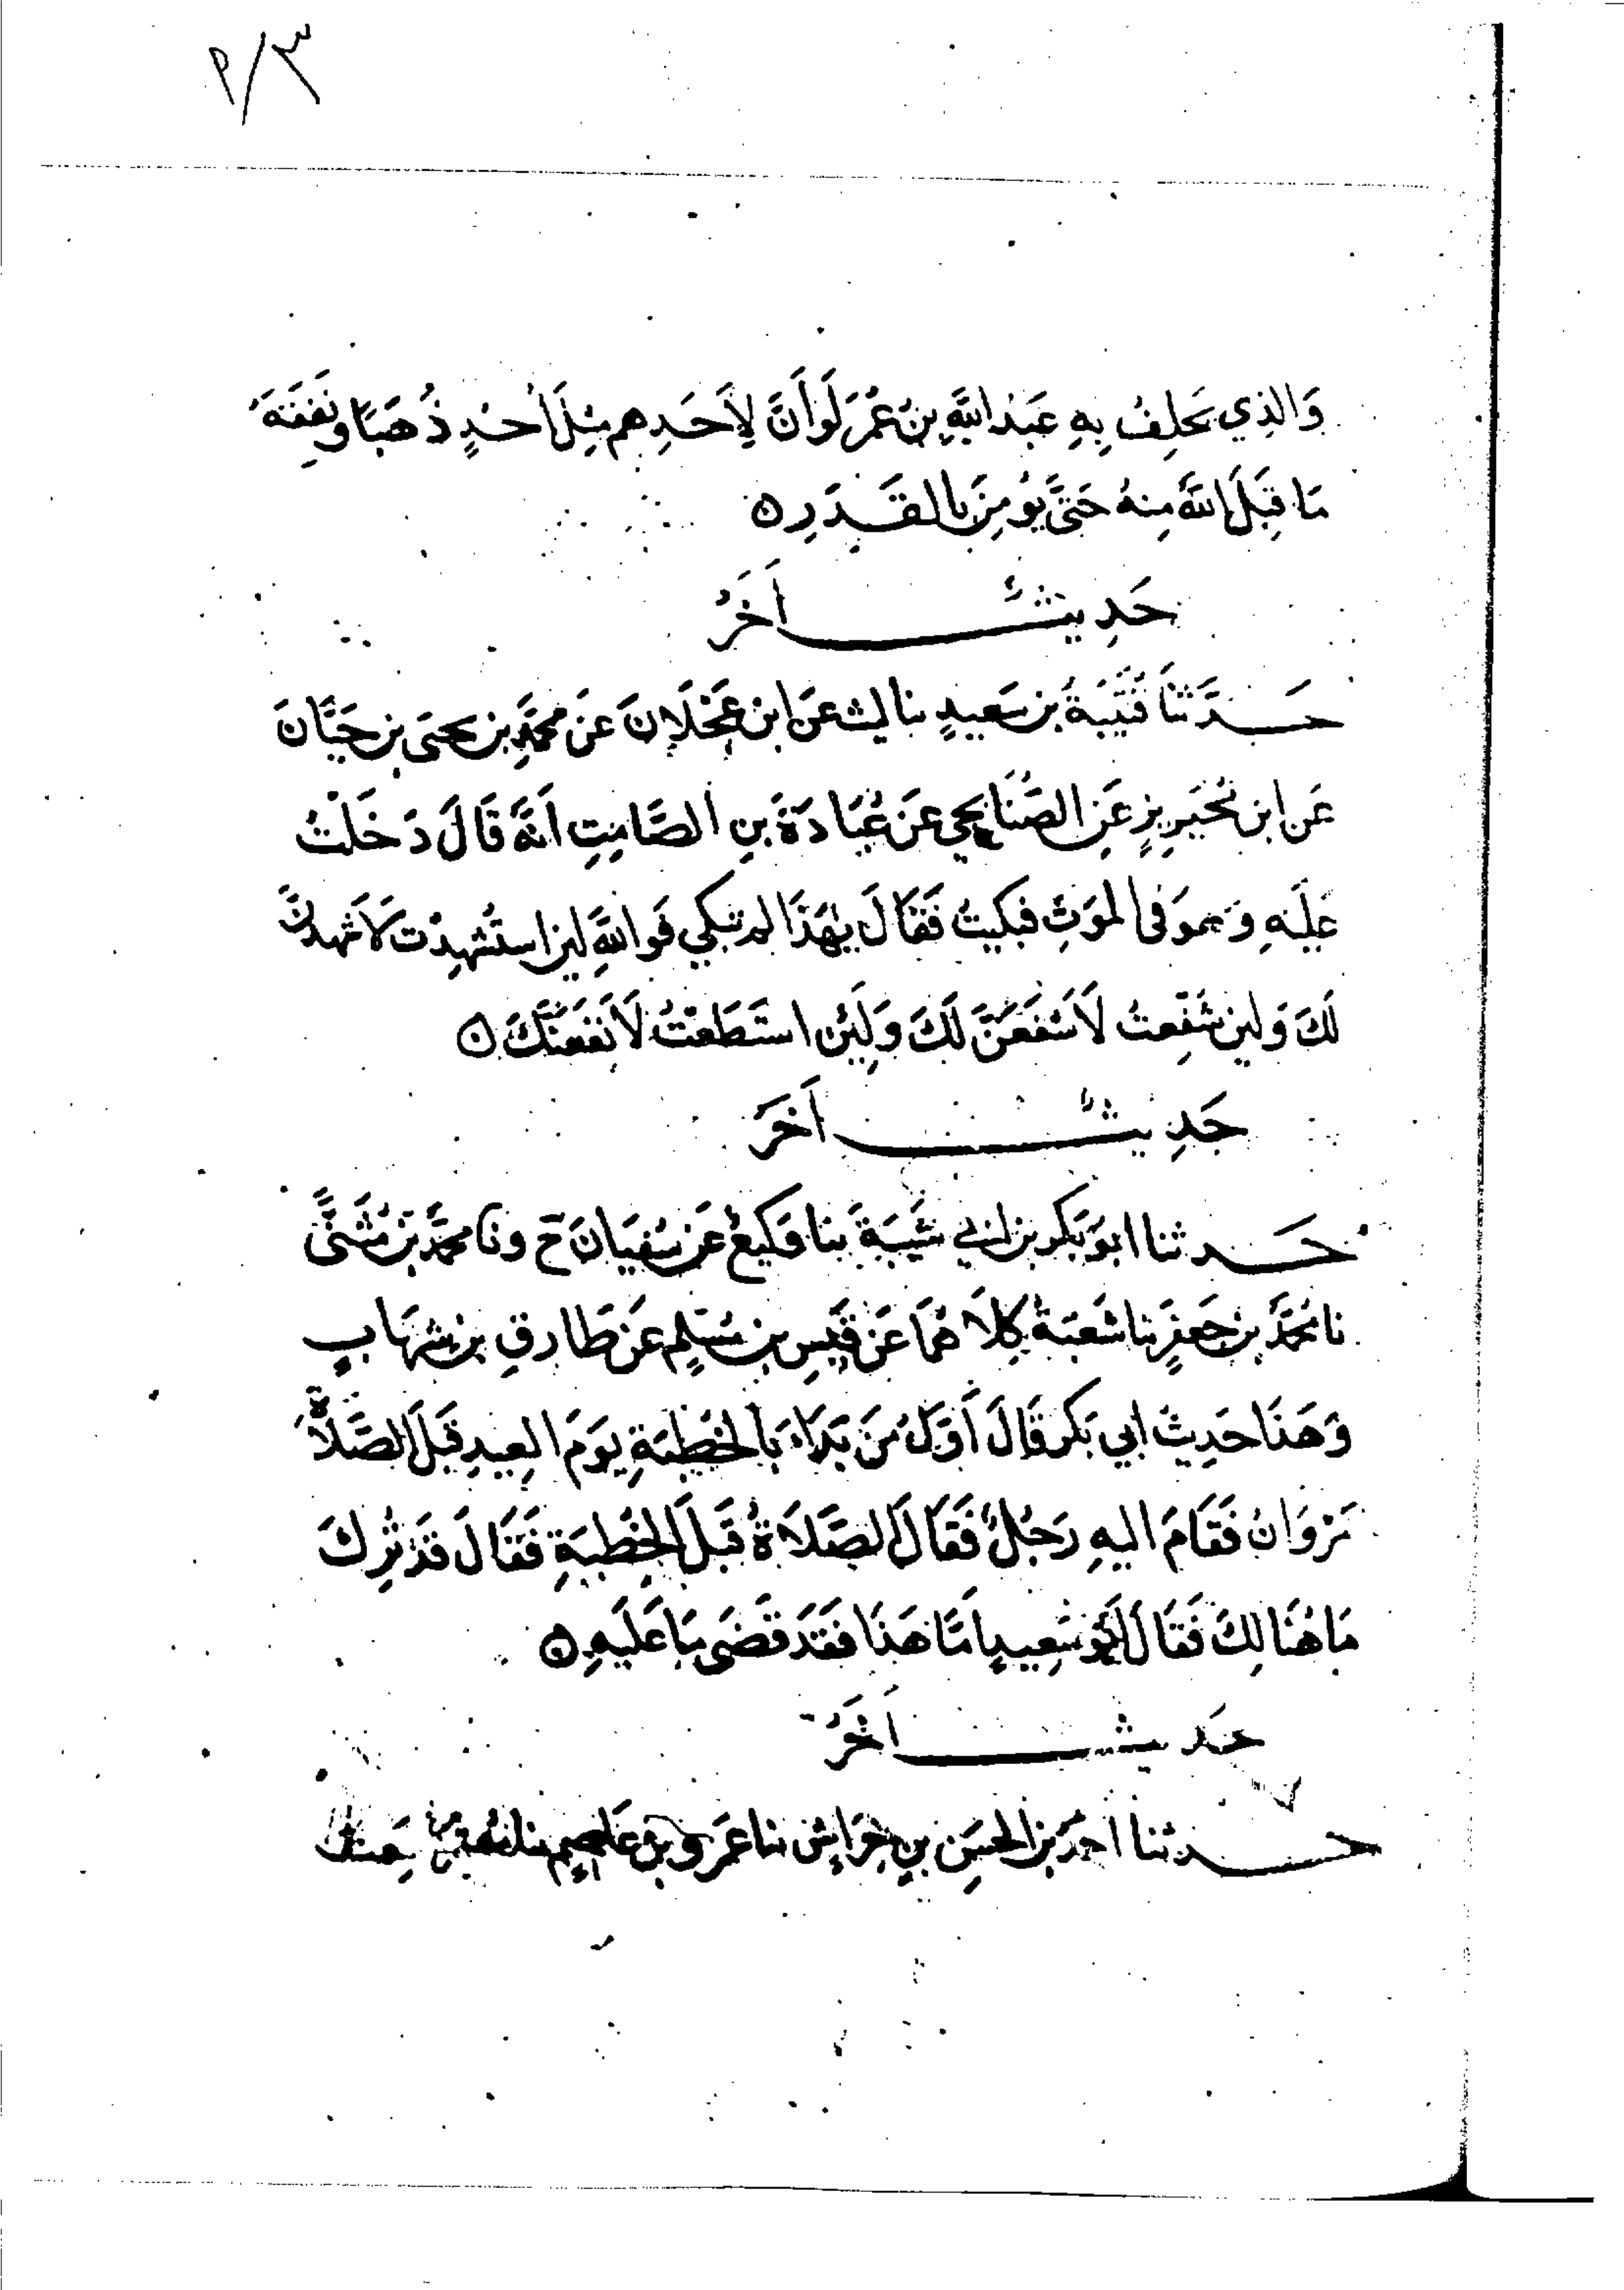 ٣/٩
وَالذِي يَحلِفُ بِهِ عَبدُ اللَّهِ بنُ عُمَرَ لَو أَنَّ لِأَحَدِهم مِثلَ أُحُدٍ ذَهَبًا ونَفَقَهَ
مَا قَبِلَ اللَّهُ مِنهُ حَتَّى يُومِنَ بالقَدَرِ ه
حَدِيثٌ أَخَرُ
حَدَّثنَا قُتَيبَةُ بن سَعِيدٍ نا ليث عَن ابن عَجْلَانَ عَن محمَّدِ بن يحيَى بن حَبَّانَ
عَن ابن مُحَيرِيزٍ عَنِ الصُّنَابحي عَن عُبَادَةَ بنِ الصَّامِتِ أنَّهُ قَالَ دَخَلتُ
عَلَيهِ وَهوَ فى الموَتِ فبكيتُ فَقَالَ مَهَذَا لم تبكي فَواللَّهِ لين استُشهِدْت لَأَشهدنَّ
لَكَ وَلين شُفِّعتُ لَأَشفَعَنَّ لَكَ وَلَئِن استَطَعْتُ لَأَنفَعَنَّكَ ه
حَدِيثٌ أَخَرَ
حَدثنا ابو بَكر بن ابي شَيبَةَ نا وَكيعٌ عَن سُفيَانَ ح ونا محمَّدُ بن مُثَنَّى
نا مُحمَّدُ بن جَعفَرٍ نا شُعبَةُ كِلَاهُمَا عَن قَيسِ بن مُسْلِمٍ عَن طَارِقِ بن شِهَابٍ
وَهَذَا حَدِيثُ ابي بَكر قَالَ أَوَّلُ مَن بَدَاءَ بِالخُطبَةِ يَومَ العِيدِ قَبلَ الصَّلَاةِ
مَرْوَانُ فَقَامَ اليهِ رَجُلٌ فَقَالَ الصَّلَاةُ قَبلَ الخُطبَةِ فَقَالَ قَد تُرِكَ
مَا هُنَالِكَ فَقَالَ أَبُو سَعِيدٍ أَمَّا هَذَا فَقَد قَضَى مَا عَلَيهِ ه
حَديثٌ أَخَرُ
حَدثنا احمَدُ بن الحسَنِ بنِ خِرَاشٍ نا عَمرو بن عَاصِمٍ نا